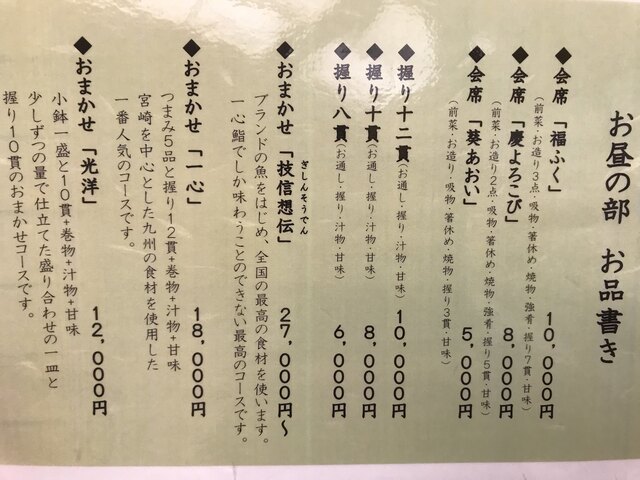 お昼の部 お品書き
◆会席「福ふく」 10,000円
(前菜・お造り3点・吸物・箸休め・焼物・強肴・握り7貫・甘味)
◆会席「慶よろこび」 8,000円
(前菜・お造り2点・吸物・箸休め・焼物・強肴・握り5貫・甘味)
◆会席「葵あおい」 5,000円
(前菜・お造り・吸物・箸休め・焼物・握り3貫・甘味)
◆握り十二貫(お通し・握り・汁物・甘味) 10,000円
◆握り十貫(お通し・握り・汁物・甘味) 8,000円
◆握り八貫(お通し・握り・汁物・甘味) 6,000円
ぎしんそうでん
◆おまかせ「技信想伝」 27,000円~
ブランドの魚をはじめ、全国の最高の食材を使います。
一心鮨でしか味わうことのできない最高のコースです。
◆おまかせ「一心」 18,000円
つまみ5品と握り12貫+巻物+汁物+甘味
宮崎を中心とした九州の食材を使用した
一番人気のコースです。
◆おまかせ「光洋」 12,000円
小鉢一盛と10貫+巻物+汁物+甘味
少しずつの量で仕立てた盛り合わせの一皿と
握り10貫のおまかせコースです。